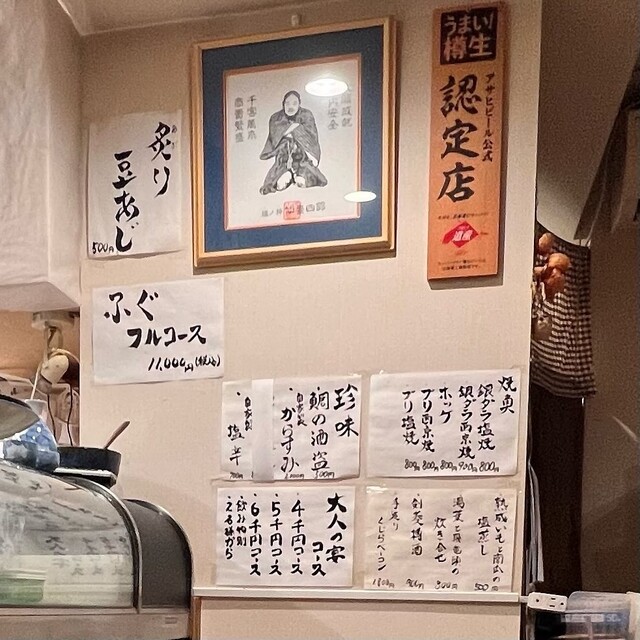 うまい!
樽生
アサヒビール公式
認定店
道産
千客万来
商売繁盛
炙り
豆あじ
500円
ふぐ
フルコース
11,000円(税込)
珍味
・鯛の酒盗
500円
・自家製
からすみ
・自家製
塩辛
焼魚
銀ダラ塩焼 800円
銀ダラ西京焼 900円
ホッケ 800円
ブリ西京焼 800円
ブリ塩焼 800円
大人の宴
コース
・4千円コース
・5千円コース
・6千円コース
・飲み物別
・2名様から
塩蒸し
500円
炊き合せ
800円
手造り
くじらベーコン
1800円